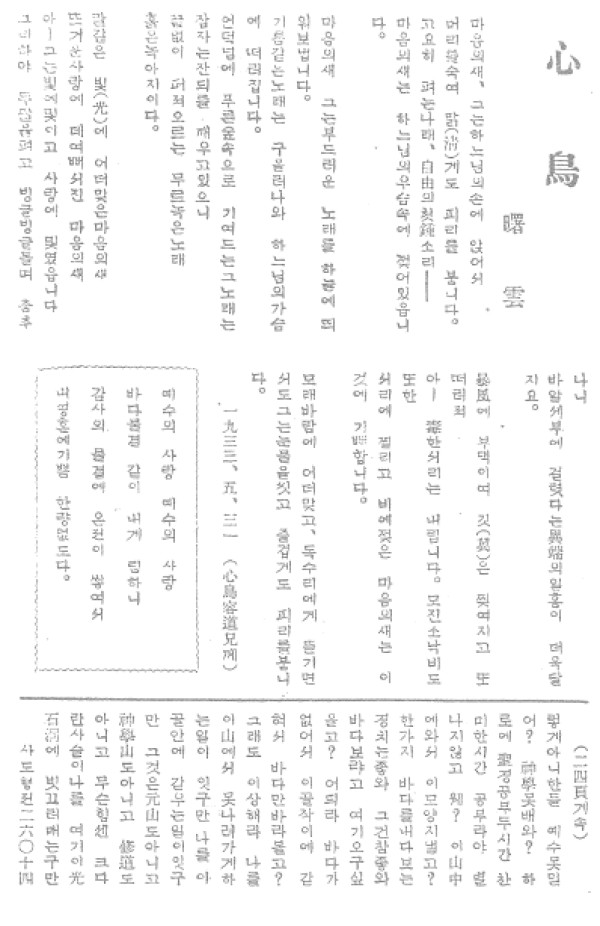 心鳥
曙雲
마음의새、그는하느님의손에 앉어서
머리를숙여 맑(淸)게도 피리를 붑니다。
고요히 펴는나래、自由의첫鍾소리――
마음의새는 하느님의우슴속에 젖어있읍니
다。
마음의새 그는부드러운 노래를 하늘에 띄
워보냅니다。
기름같은노래는 구을러나와 하느님의가슴
에 떠러집니다。
언덕넘에 푸른숲속으로 기여드는그노래는
잠자는잔듸를 깨우고있으니
끝없이 퍼저오르는 무르녹은노래
흙은녹아지이다。
칼같은 빛(光)에 어더맞은마음의새
뜨거운사랑에 데여빠서진 마음의새
아ー그는빛에및이고 사랑에 및였읍니다
그리하야 두발을펴고 빙글빙글돌며 춤추
나니
바알세부에 걸렷다는異端의일홈이 더욱달
지요。
暴風에 부댁이여 깃(翼)은 찢여지고 또
떠러저
아ー 毒한서리는 내립니다。모진소낙비도
또한
서리에 찔리고 비에젖은 마음의새는 이
것에 기뻐합니다。
모래바람에 어더맞고、독수리에게 뜯기면
서도그는눈물을씻고 즐겁게도 피리를붑니
다。
一九三三、五、三一 (心鳥容道兄께)
예수의 사랑 예수의 사랑
바다물결 같이 내게 림하니
감사의 물결에 온전이 쌓여서
내영혼에기쁨 한량없도다。
(二四頁게속)
렇게아니한들 예수못믿
어? 神學못배와? 하
로에 聖경공부두시간 찬
미한시간 공부라야 별
나지않고 웨? 이山中
에와서 이모양지낼고?
한가지 바다를내다보는
경치는좋와 그건참좋와
바다보랴고 여기오구싶
을고? 어듸라 바다가
없어서 이골작이에 갇
혀서 바다만바라볼고?
그래도 이상해라 나를
이山에서 못나려가게하
는일이 잇구만 나를 이
꼴안에 갈우는일이잇구
만 그것은元山도아니고
神學山도아니고 修道도
아니고 무슨힘센 크다
란사슬이나를 여기이光
石洞에 빗끄러매는구만
사도형전二六〇十四